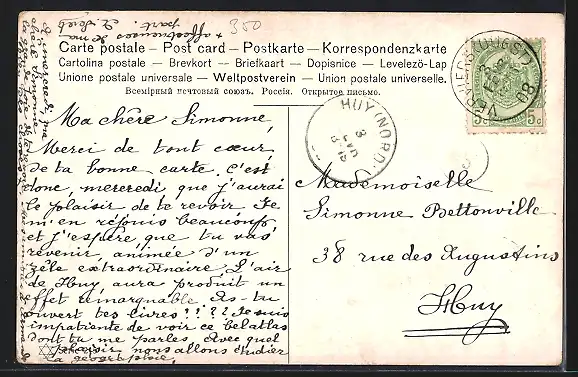 350
Carte postale – Post card – Postkarte – Korrespondenzkarte
Cartolina postale – Brevkort – Briefkaart – Dopisnice – Levelező-Lap
Unione postale universale – Weltpostverein – Union postale universelle.
Всемірный почтовый союзъ. Россія. Открытое письмо.
Ma chère Simonne,
Merci de tout cœur
de ta bonne carte. C'est
donc, mercredi que j'aurai
le plaisir de te revoir. Je
m'en réjouis beaucoup
et j'espère que tu vas
revenir, animée d'un
zèle extraordinaire. L'air
de Huy aura produit un
effet remarquable. As-tu
ouvert tes livres!???! Je suis
impatiente de voir ce bel atlas
dont tu me parles. Avec quel
plaisir nous allons étudier
la géographie.
à mercredi, ma
chère Simonne
+ affectueuses de ma
part.
Mademoiselle
Simonne Bettonville
38 rue des Augustins
Huy
HUY (NORD)
VERVIERS (OUEST)
08
5c 5c